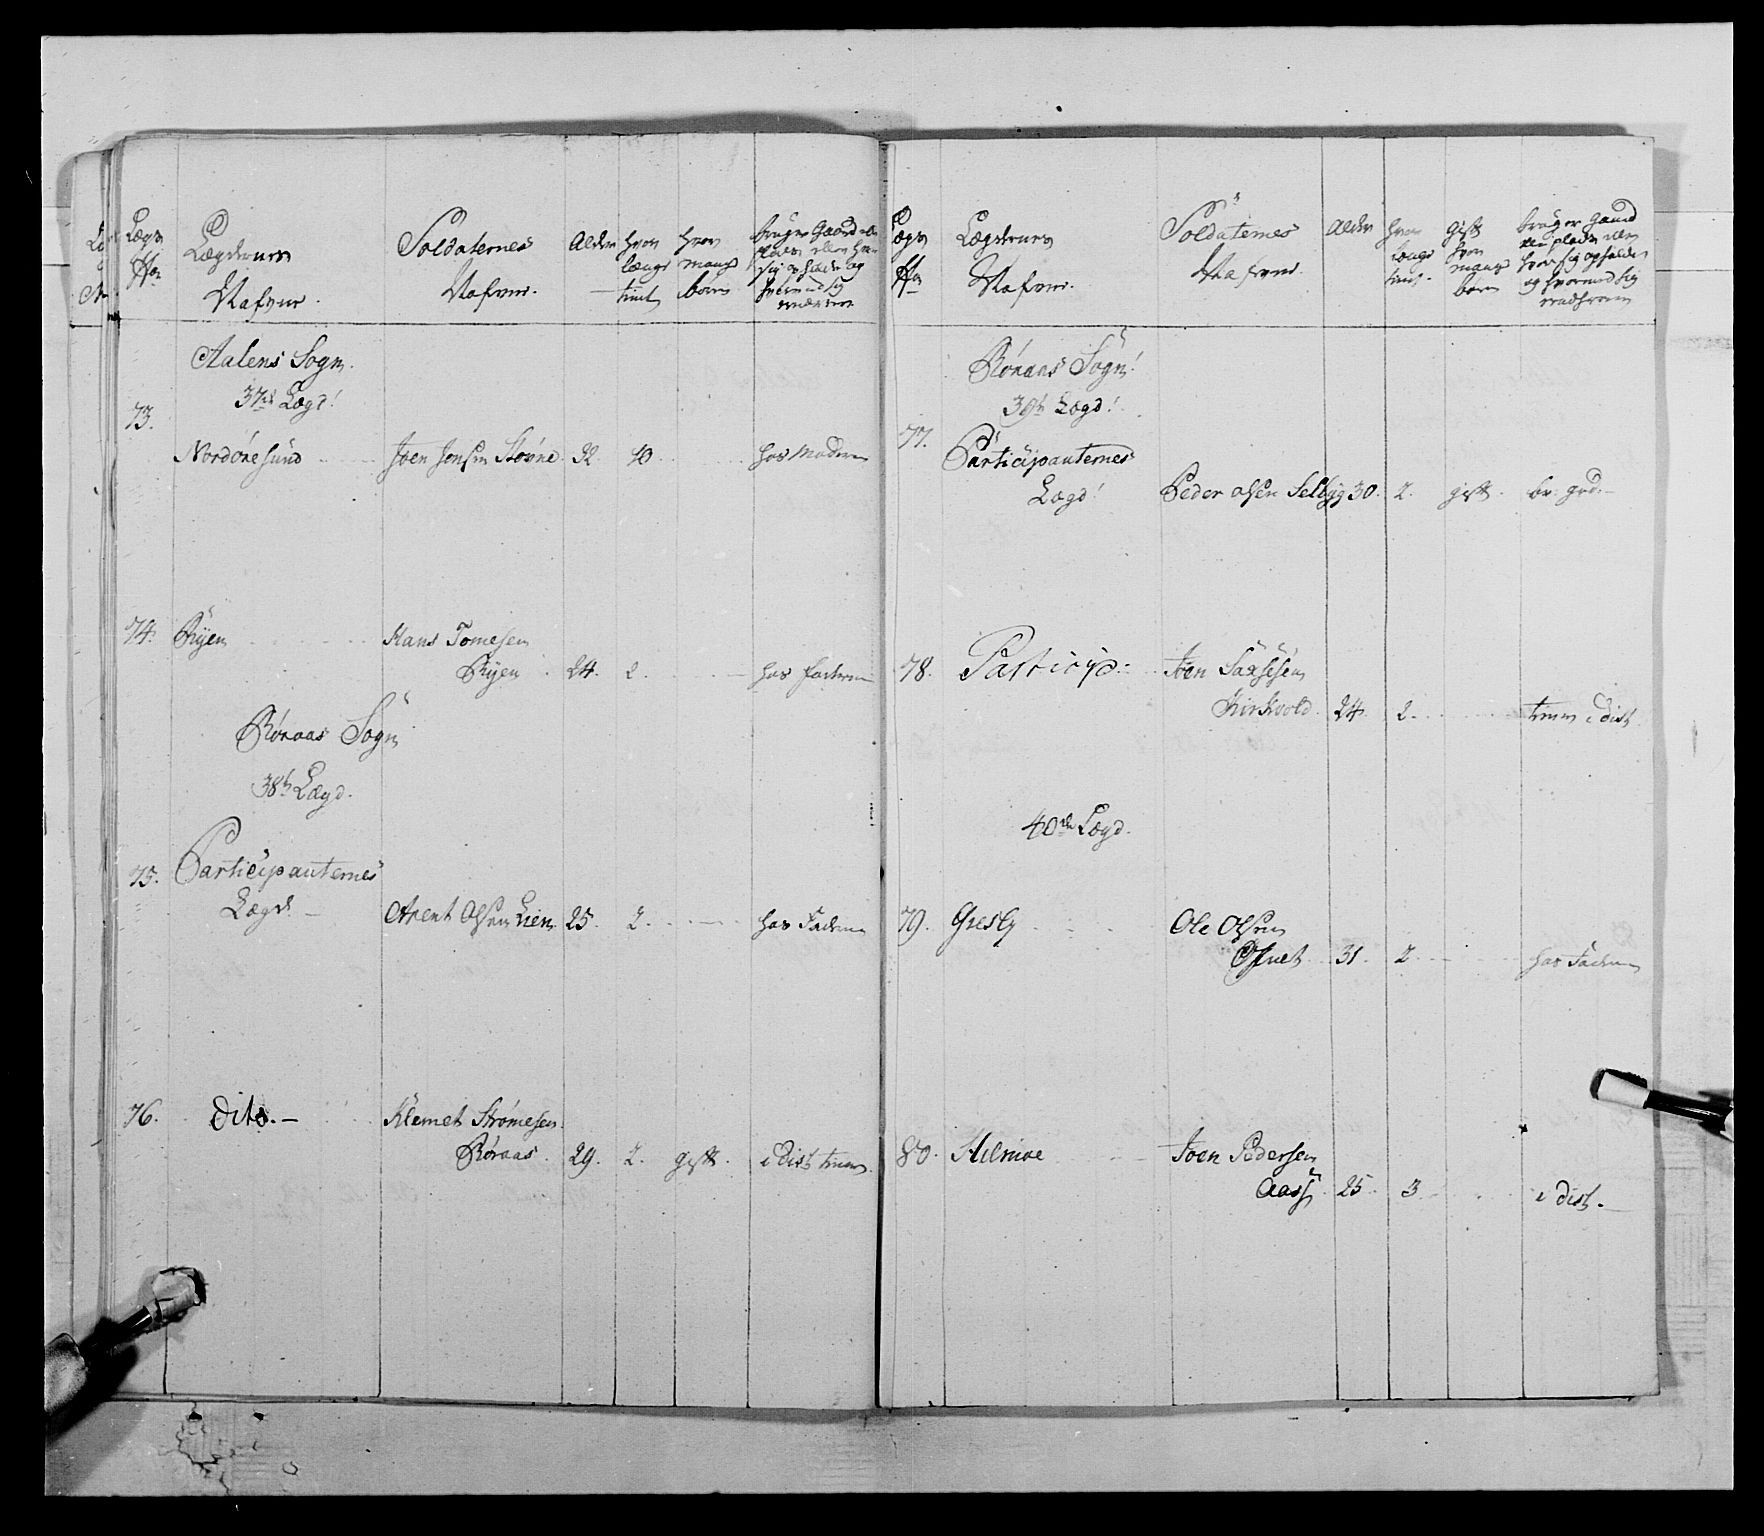 Lægs
No
Lægdernes
Nafne.
Soldaternes
Nafne.
Alder
hvor
længe
tient
hvor
mange
børn
bruger Gaard
Aalens Sogn.
37de Lægd!
73.
Nordøresund Joen Jonsen Støvne 32 10 hos Moderen
74. Ryen Hans Tomesen
Ryen 24. 2. hos faderen
Røraas Sogn
38te Lægd.
75. Participanternes
Lægd. Arent Olsen Lien 25. 2. hos Faderen
76. Dito. Klemet Strømesen
Røraas. 29. 2. gift. i dist tienn
Lægs
No
Lægdernes
Nafne.
Soldaternes
Nafne.
Alder
hvor
længe
tient.
gift
hvor
mange
børn
bruger Gaard
eller plads eller
hvor sig opholder
og hvormed sig
Røraas Sogn!
39te Lægd!
77. Participanternes
Lægd! Peder Olsen Selbyg 30. 2. gift. br: grd:
78. Particip: Joen Saxsesen
Kirkvold. 24. 2. i dist
40de Lægd.
79. Gresly Ole Olsen
31. 2. hos Faderen
80. Hilmoe Joen Pedersen
Aass 25. 3. i dist.